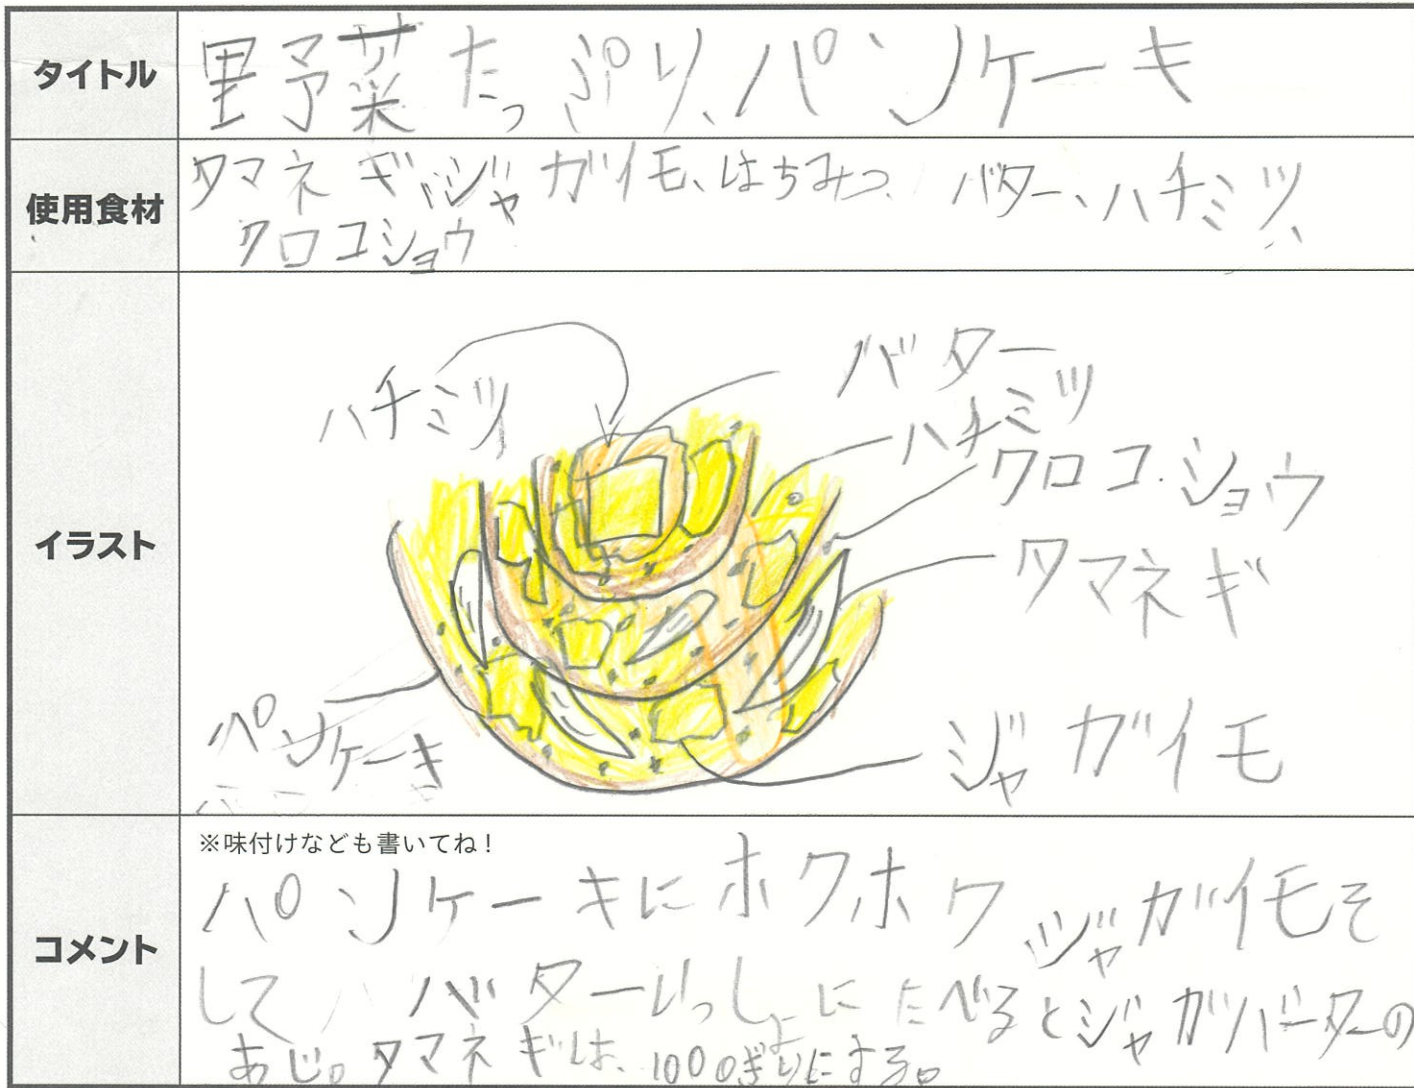 タイトル
野菜たっぷり、パンケーキ
使用食材
タマネギ、ジャガイモ、はちみつ、バター、ハチミツ、
クロコショウ
イラスト
ハチミツ
バター
ハチミツ
クロコショウ
タマネギ
パンケーキ
ジャガイモ
コメント
※味付けなども書いてね！
パンケーキにホクホクジャガイモそ
してバターいっしょにたべるとジャガバーターの
あじ。タマネギは、1000ぎりにする。